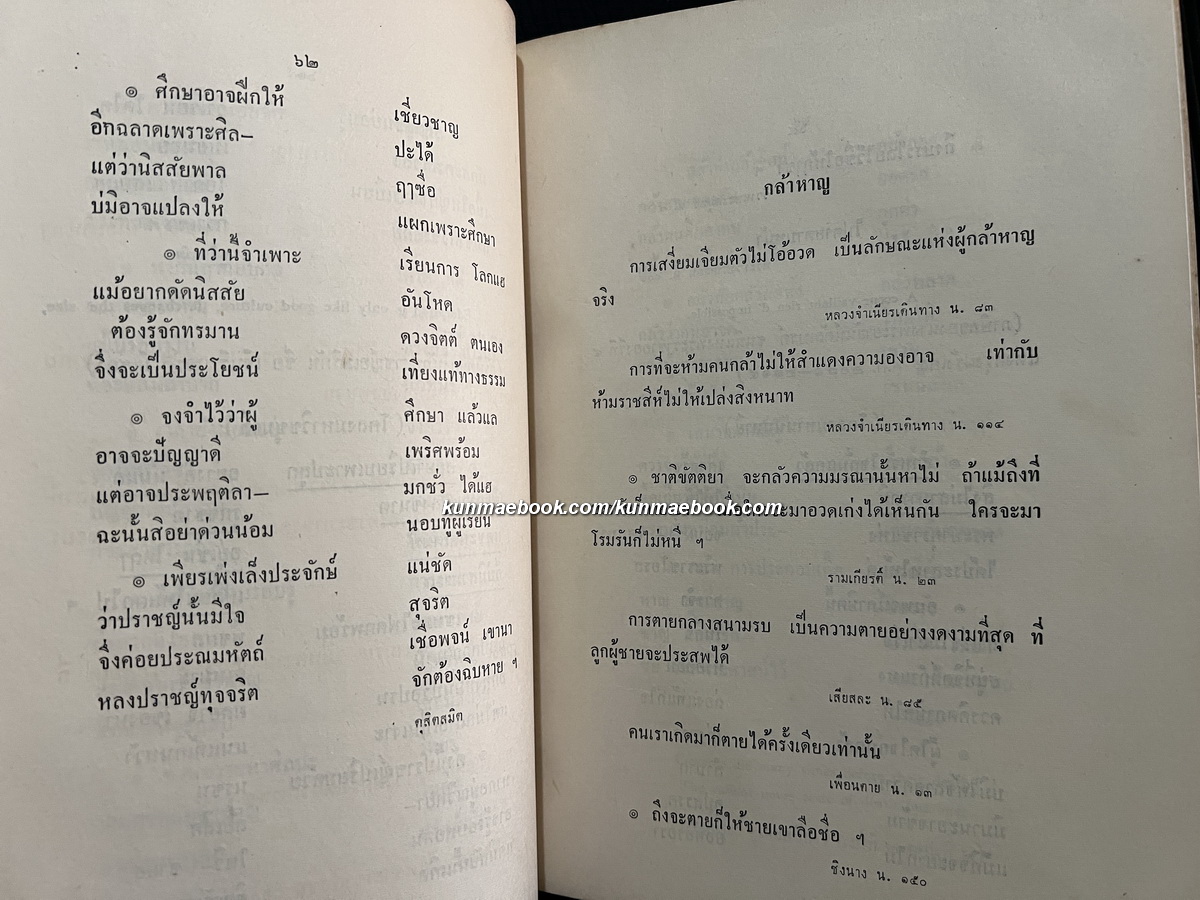 ๖๒
๏ ศึกษาอาจฝึกให้ เชี่ยวชาญ
อีกฉลาดเพราะศิล– ปะได้
แต่ว่านิสสัยพาล ฤๅซื่อ
บ่มิอาจแปลงให้ แผกเพราะศึกษา
๏ ที่ว่านี้จำเพาะ เรียนการ โลกแฮ
แม้อยากดัดนิสสัย อันโหด
ต้องรู้จักทรมาน ดวงจิตต์ ตนเอง
จึ่งจะเป็นประโยชน์ เที่ยงแท้ทางธรรม
๏ จงจำไว้ว่าผู้ ศึกษา แล้วแล
อาจจะปัญญาดี เพริศพร้อม
แต่อาจประพฤติลา– มกชั่ว ได้แฮ
ฉะนั้นสิอย่าด่วนน้อม นอบทู่ผู้เรียน
๏ เพียรเพ่งเล็งประจักษ์ แน่ชัด
ว่าปราชญ์นั้นมีใจ สุจริต
จึ่งค่อยประณมหัตถ์ เชื่อพจน์ เขานา
หลงปราชญ์ทุจจริต จักต้องฉิบหาย ฯ
ดุสิตสมิต
กล้าหาญ
การเสงี่ยมเจียมตัวไม่โอ้อวด เป็นลักษณะแห่งผู้กล้าหาญ
จริง
หลวงจำเนียรเดินทาง น. ๘๓
การที่จะห้ามคนกล้าไม่ให้สำแดงความองอาจ เท่ากับ
ห้ามราชสีห์ไม่ให้เปล่งสิงหนาท
หลวงจำเนียรเดินทาง น. ๑๑๔
๏ ชาติขัตติยา จะกลัวความมรณานั้นหาไม่ ถ้าแม้ถึงที่
จะมาอวดเก่งได้เห็นกัน ใครจะมา
kunmaebook.com/kunmaebook.com
โรมรันก็ไม่หนี ฯ
รามเกียรติ์ น. ๒๓
การตายกลางสนามรบ เป็นความตายอย่างงดงามที่สุด ที่
ลูกผู้ชายจะประสพได้
เสียสละ น. ๘๕
คนเราเกิดมาก็ตายได้ครั้งเดียวเท่านั้น
เพื่อนตาย น. ๑๓
๏ ถึงจะตายก็ให้ชายเขาลือชื่อ ฯ
ชิงนาง น. ๑๕๐